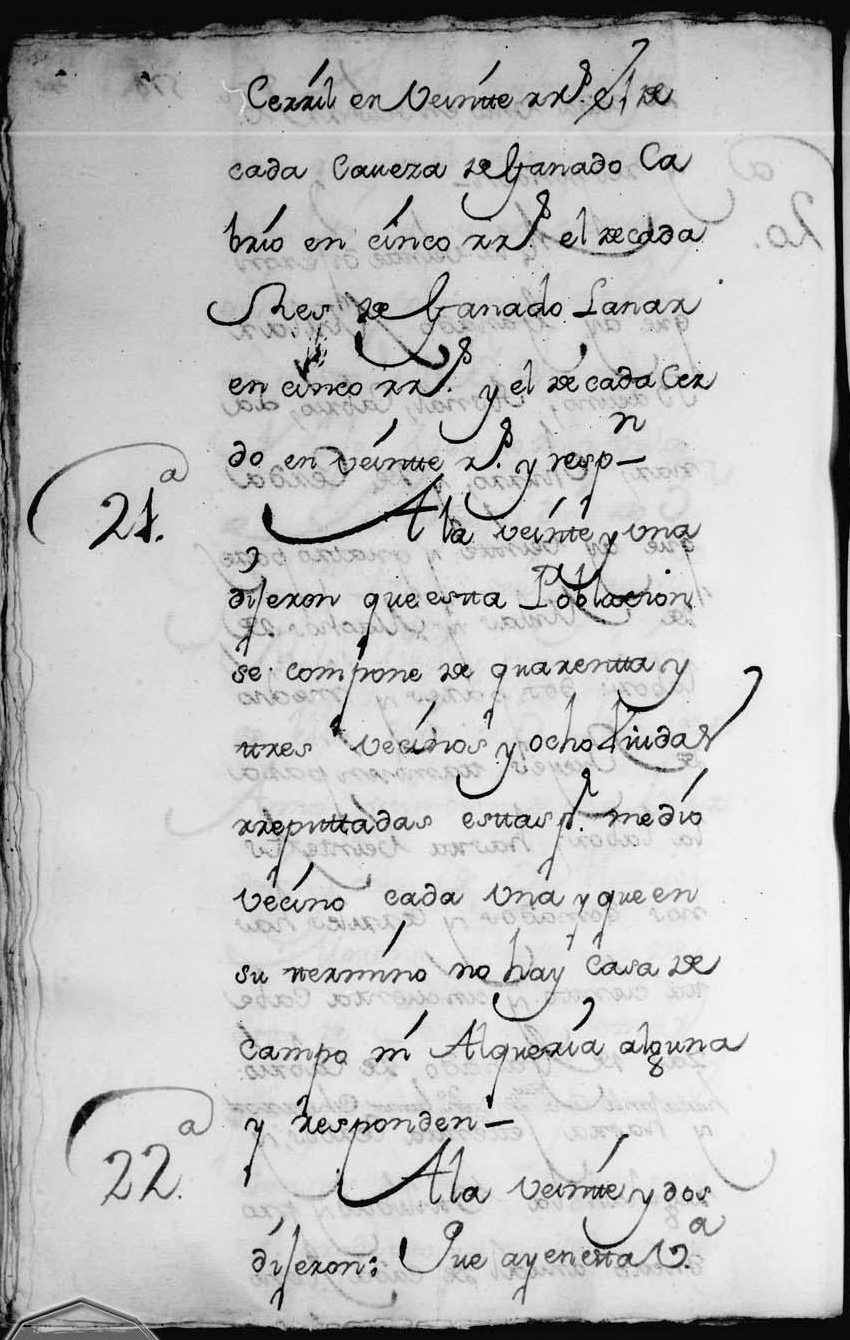 Cerril en Veintte rr.s el de
cada Caveza de Ganado Ca
brío en cinco rr.s el de cada
Res de Ganado Lanar
en cinco rr.s y el de cada Cer
do en veintte r.s y resp.n
21.a
A la veinte y una
dijeron que estta Poblacion
se compone de quarentta y
ttres vecinos y ocho Viudas
rreputtadas esttas p.r medio
vecino cada una y que en
su ttermino no hay Casa de
Campo ni Alquería alguna
y responden
22.a
A la veintte y dos
dijeron: Que ay en estta V.a